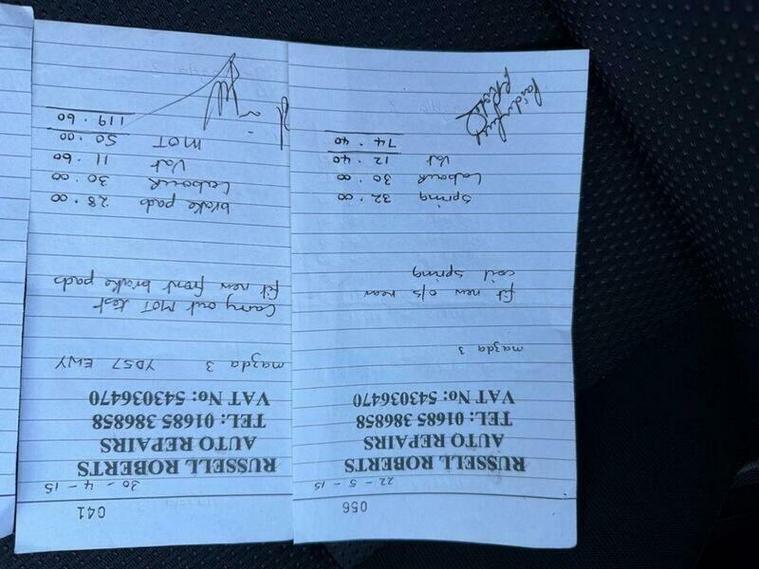 056
22-5-15
RUSSELL ROBERTS
AUTO REPAIRS
TEL: 01685 386858
VAT No: 543036470
mazda 3
fit new o/s rear
coil spring
Spring 32.00
Labour 30.00
Vat 12.40
74.40
041
30-4-15
RUSSELL ROBERTS
AUTO REPAIRS
TEL: 01685 386858
VAT No: 543036470
mazda 3 YD57 EWY
Carry out MOT test
fit new front brake pads
brake pads 28.00
Labour 30.00
Vat 11.60
MOT 50.00
119.60